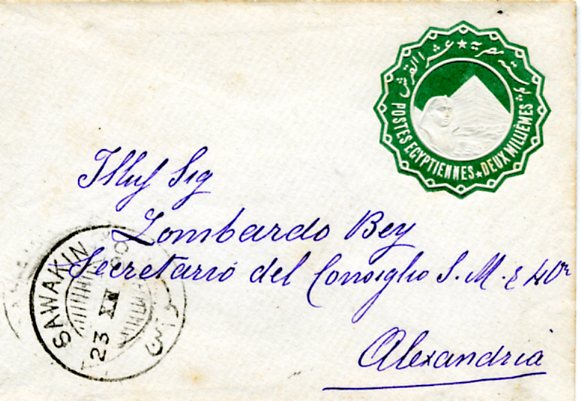 POSTES EGYPTIENNES
DEUX MILLIEMES
Illus Sig
Lombardo Bey
Secretario del Consiglio S. M. E
Alexandria
SAWAKIN
23 XII